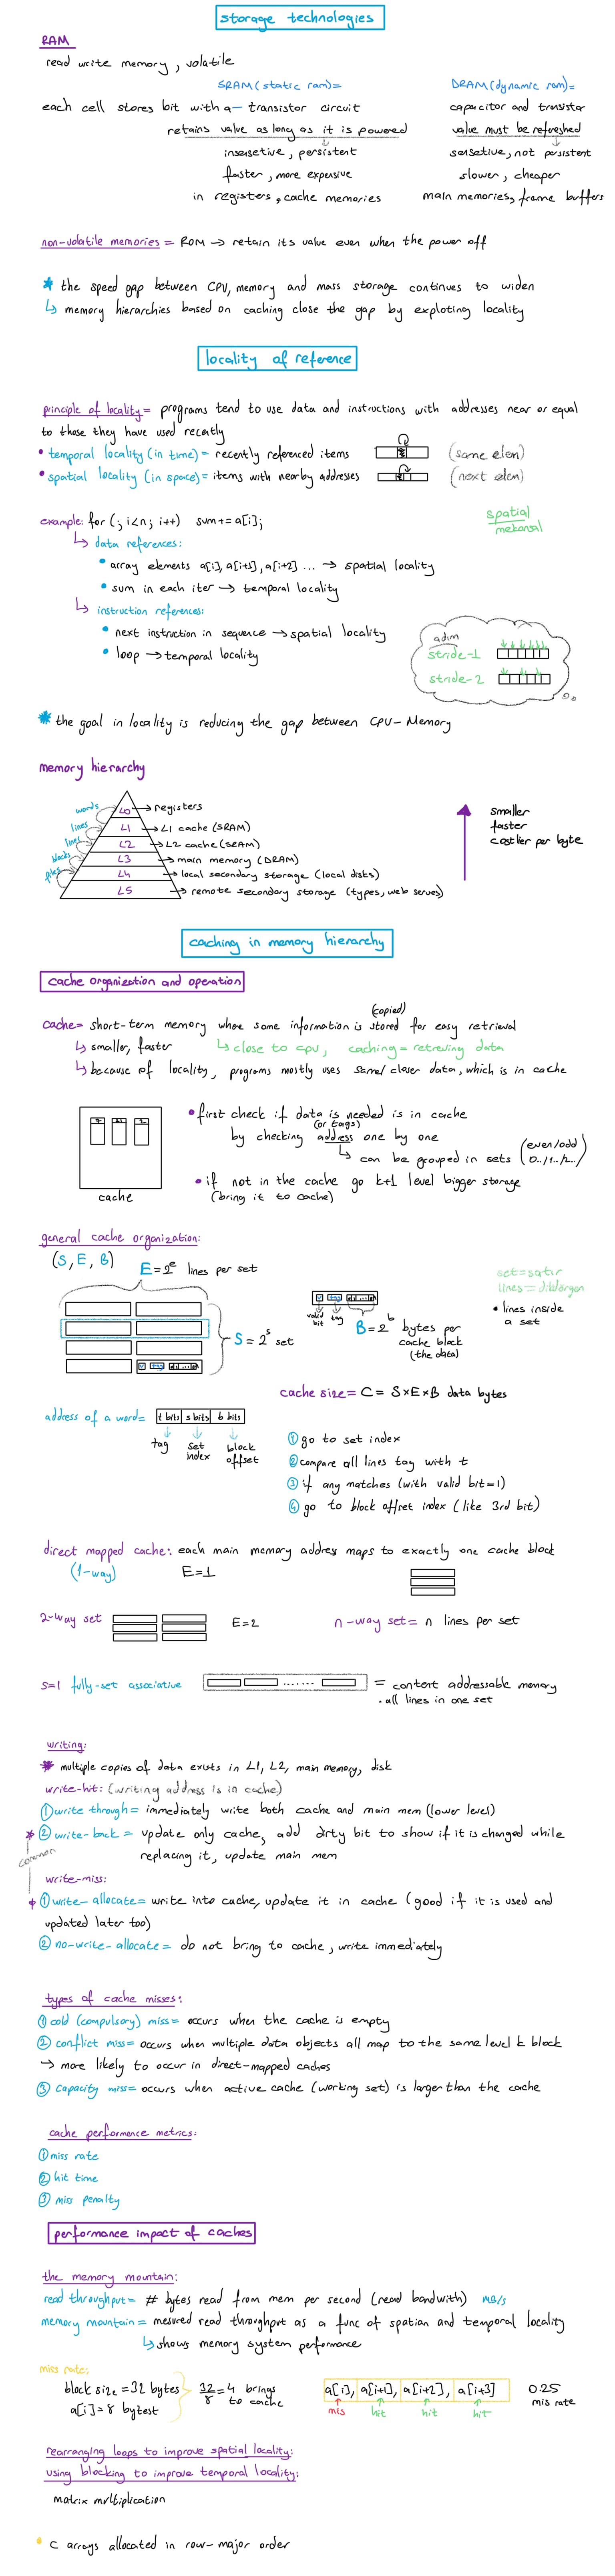 storage technologies
RAM
read write memory, volatile
SRAM (static ram)=
DRAM (dynamic ram)=
each cell stores bit with a transistor circuit
capacitor and transistor
retains value as long as it is powered
value must be refreshed
insensetive, persistent
sensetive, not persistent
faster, more expensive
slower, cheaper
in registers, cache memories
main memories, frame buffers
non-volatile memories = ROM → retain its value even when the power off
* the speed gap between CPU, memory and mass storage continues to widen
↳ memory hierarchies based on caching close the gap by exploting locality
locality of reference
principle of locality= programs tend to use data and instructions with addresses near or equal
to those they have used recently
• temporal locality (in time)= recently referenced items
(same elem)
• spatial locality (in space)= items with nearby addresses
(next elem)
example: for (; i<n; i++) sum+=a[i];
spatial
mekansal
↳ data references:
• array elements a[i], a[i+1], a[i+2] ... → spatial locality
• sum in each iter → temporal locality
↳ instruction references:
• next instruction in sequence → spatial locality
• loop → temporal locality
adım
stride-1
stride-2
* the goal in locality is reducing the gap between CPU-Memory
memory hierarchy
words
L0 → registers
lines
L1 → L1 cache (SRAM)
lines
L2 → L2 cache (SRAM)
blocks
L3 → main memory (DRAM)
files
L4 → local secondary storage (local dists)
L5 → remote secondary storage (types, web serves)
smaller
faster
costlier per byte
caching in memory hierarchy
cache organization and operation
(copied)
cache= short-term memory where some information is stored for easy retrieval
↳ smaller, faster
↳ close to cpu, caching = retreving data
↳ because of locality, programs mostly uses same/closer data, which is in cache
cache
• first check if data is needed is in cache
(or tags)
by checking address one by one
↳ can be grouped in sets (even/odd 0../1../2..)
• if not in the cache go k+1 level bigger storage
(bring it to cache)
general cache organization:
(S, E, B)
E=2^e lines per set
S = 2^s set
v tag
valid bit
tag
B=2^b bytes per
cache block
(the data)
set=satır
lines=dikdörgen
• lines inside
a set
cache size= C = S×E×B data bytes
address of a word= t bits s bits b bits
tag
set index
block offset
① go to set index
② compare all lines tag with t
③ if any matches (with valid bit=1)
④ go to block offset index (like 3rd bit)
direct mapped cache: each main memory addres maps to exactly one cache block
(1-way)
E=1
2-way set
E=2
n-way set= n lines per set
s=1 fully-set associative
= content addressable memory
• all lines in one set
writing:
* multiple copies of data exists in L1, L2, main memory, disk
write-hit: (writing address is in cache)
① write through= immediately write both cache and main mem (lower level)
* ② write-back = update only cache, add dirty bit to show if it is changed while
replacing it, update main mem
common
write-miss:
* ① write-allocate= write into cache, update it in cache (good if it is used and
updated later too)
② no-write-allocate= do not bring to cache, write immediately
types of cache misses:
① cold (compulsory) miss= occurs when the cache is empty
② conflict miss= occurs when multiple data objects all map to the same level k block
→ more likely to occur in direct-mapped caches
③ capacity miss= occurs when active cache (working set) is larger than the cache
cache performance metrics:
① miss rate
② hit time
③ miss penalty
performance impact of caches
the memory mountain:
read throughput= # bytes read from mem per second (read bandwith) MB/s
memory mountain= mesured read throughput as a func of spatian and temporal locality
↳ shows memory system performance
miss rate:
block size = 32 bytes
a[i]= 8 bytest
32/8 = 4 brings to cache
a[i], a[i+1], a[i+2], a[i+3]
mis
hit
hit
hit
0.25
mis rate
rearranging loops to improve spatial locality:
using blocking to improve temporal locality:
matrix multiplication
• C arrays allocated in row-major order